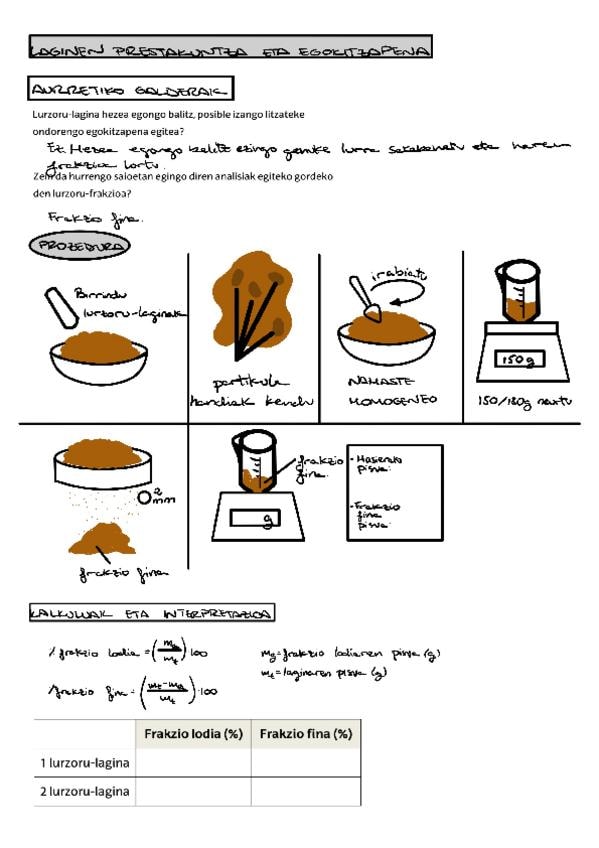 LAGINEN PRESTAKUNTZA ETA EGOKITZAPENA
AURRETIKO GALDERAK
Lurzoru-lagina hezea egongo balitz, posible izango litzateke
ondorengo egokitzapena egitea?
Ez. Hezea egongo balitz ezingo genuke lurra eta haren
frakzioa lortu.
Zein da hurrengo saioetan egingo diren analisiak egiteko gordeko
den lurzoru-frakzioa?
Frakzio fina.
PROZEDURA
Birrindu
lurzoru-laginak
partikula
handiak kendu
irabiatu
NAHASTE
HOMOGENEO
150g
150/180g hartu
2
mm
frakzio fina
g
frakzio
fina.
- Hasierako
pisua:
- Frakzio
fina
pisua:
KALKULUAK ETA INTERPRETAZIOA
% frakzio lodia = (mg/mt)·100
mg = frakzio lodiaren pisua (g)
mt = laginaren pisua (g)
% frakzio fina = (mt-mg/mt)·100
Frakzio lodia (%) Frakzio fina (%)
1 lurzoru-lagina
2 lurzoru-lagina